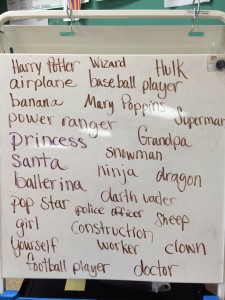 Harry Potter Wizard Hulk
airplane baseball player
banana Mary Poppins Superman
power ranger
princess Grandpa
santa snowman
ballerina ninja dragon
pop star darth vader
police officer sheep
girl construction
yourself worker clown
football player doctor